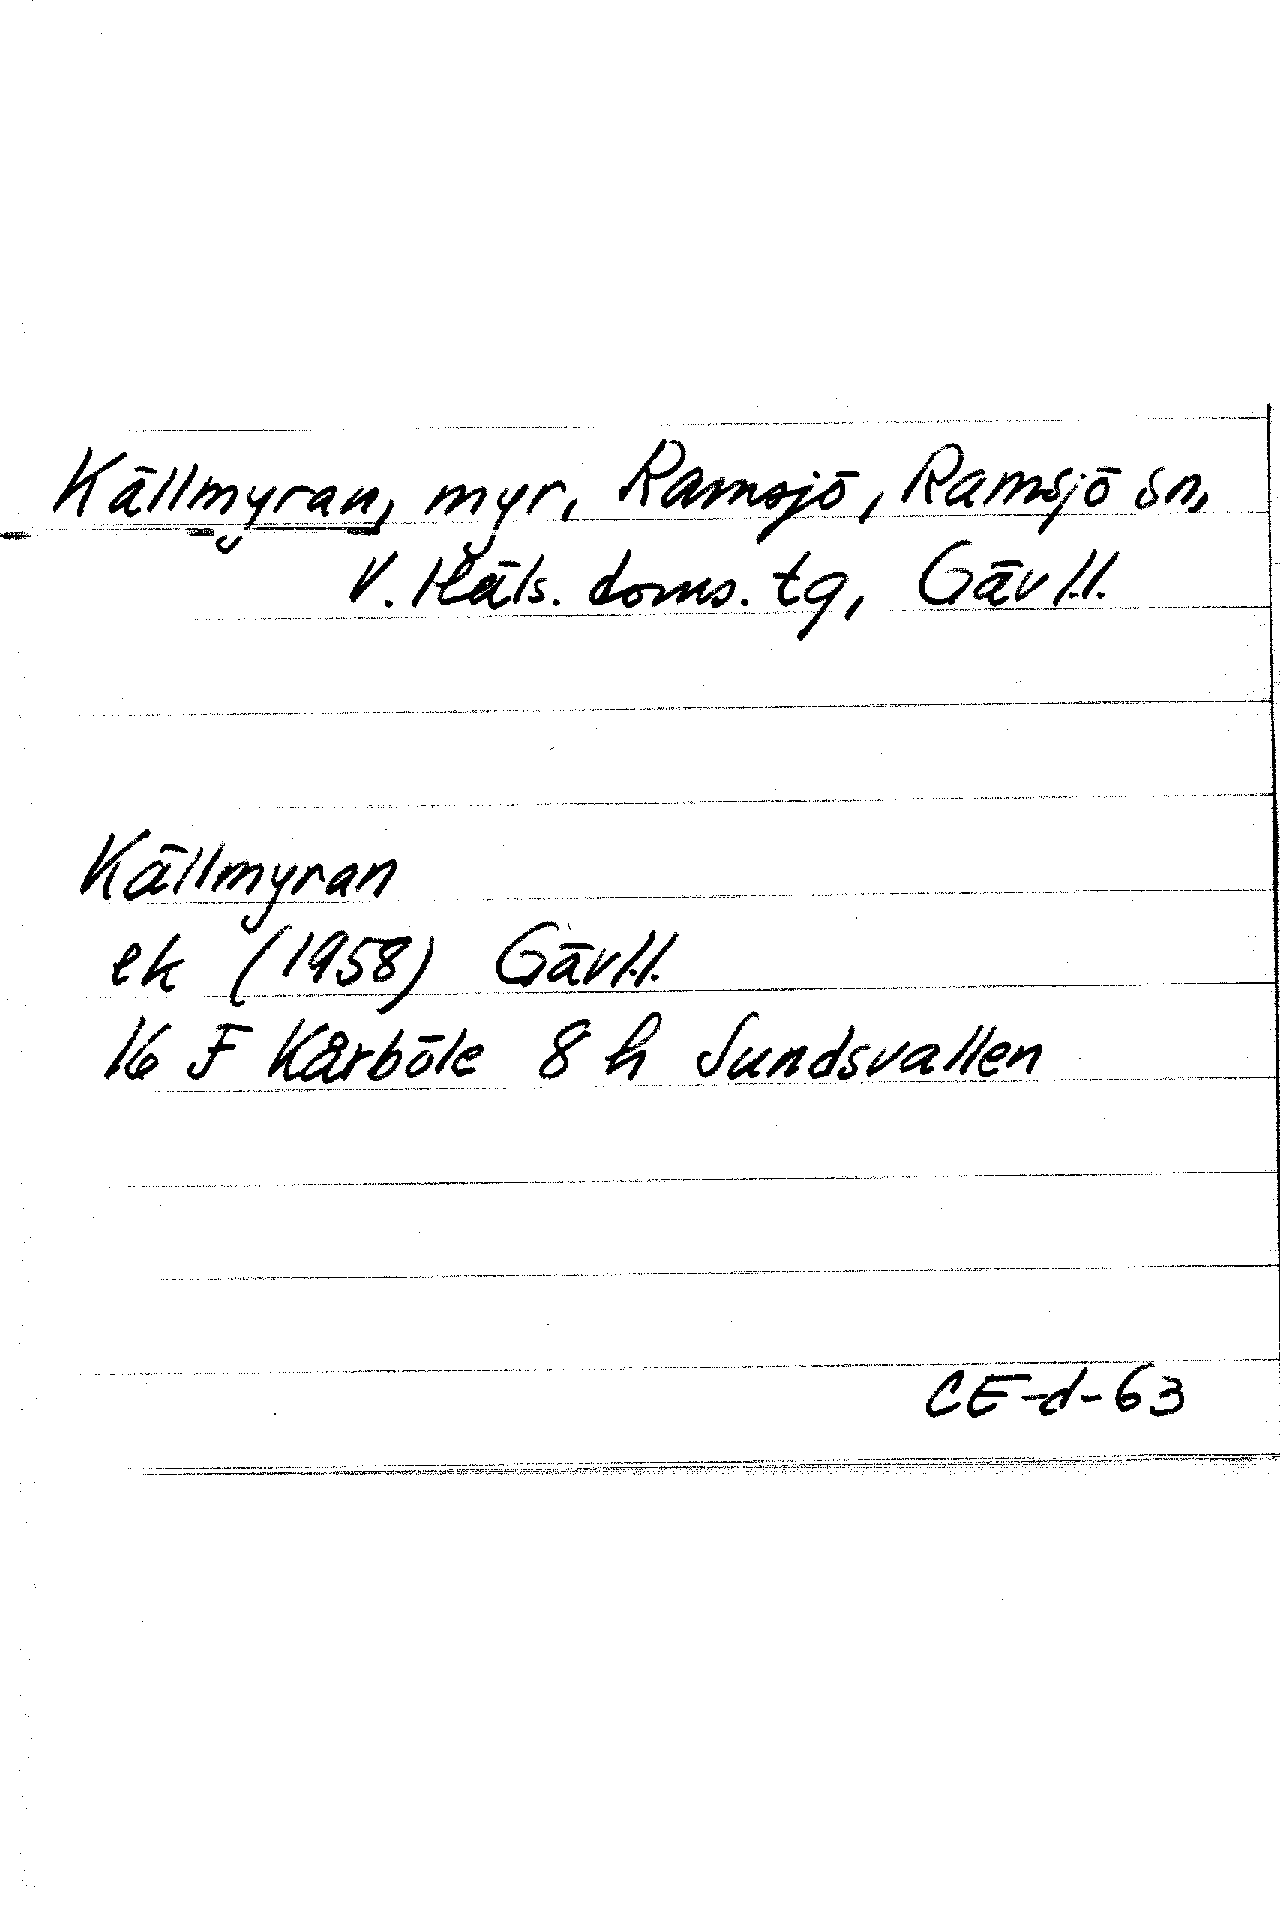 Källmyran, myr, Ramsjö, Ramsjö sn,
V. Häls. doms. tg, Gävl.l.
Källmyran
ek (1958) Gävl.l.
16 F Kårböle 8 h Sundsvallen
CE-d-63